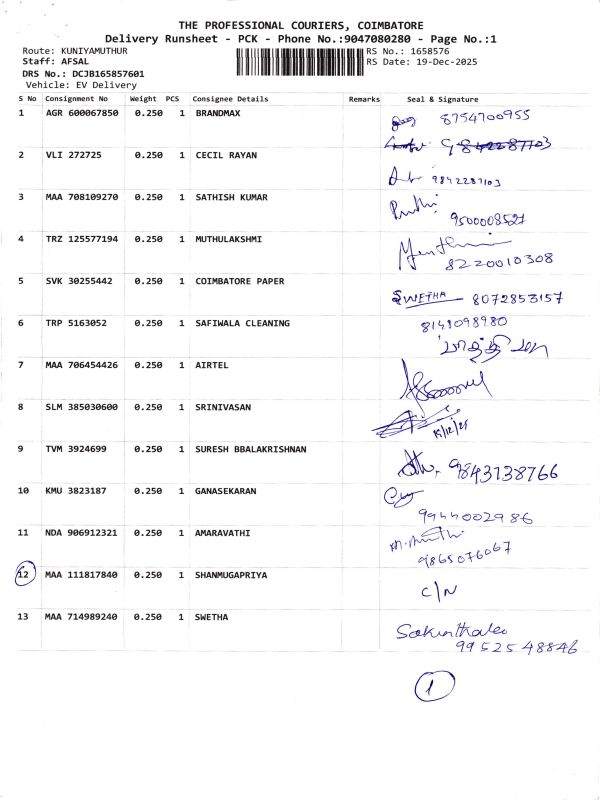 THE PROFESSIONAL COURIERS, COIMBATORE
Delivery Runsheet - PCK - Phone No.:9047080280 - Page No.:1
Route: KUNIYAMUTHUR
RS No.: 1658576
Staff: AFSAL
RS Date: 19-Dec-2025
DRS No.: DCJB165857601
Vehicle: EV Delivery
S No Consignment No Weight PCS Consignee Details Remarks Seal & Signature
1 AGR 600067850 0.250 1 BRANDMAX 8754700955
9842287103
2 VLI 272725 0.250 1 CECIL RAYAN
9842287103
3 MAA 708109270 0.250 1 SATHISH KUMAR
9500008527
4 TRZ 125577194 0.250 1 MUTHULAKSHMI
8220010308
5 SVK 30255442 0.250 1 COIMBATORE PAPER
SWETHA 8072853157
6 TRP 5163052 0.250 1 SAFIWALA CLEANING 8148098980
7 MAA 706454426 0.250 1 AIRTEL
8 SLM 385030600 0.250 1 SRINIVASAN
9 TVM 3924699 0.250 1 SURESH BBALAKRISHNAN
9843138766
10 KMU 3823187 0.250 1 GANASEKARAN
9944002986
11 NDA 906912321 0.250 1 AMARAVATHI
9865076067
12 MAA 111817840 0.250 1 SHANMUGAPRIYA
C/N
13 MAA 714989240 0.250 1 SWETHA
Sakunthala
9952548846
1